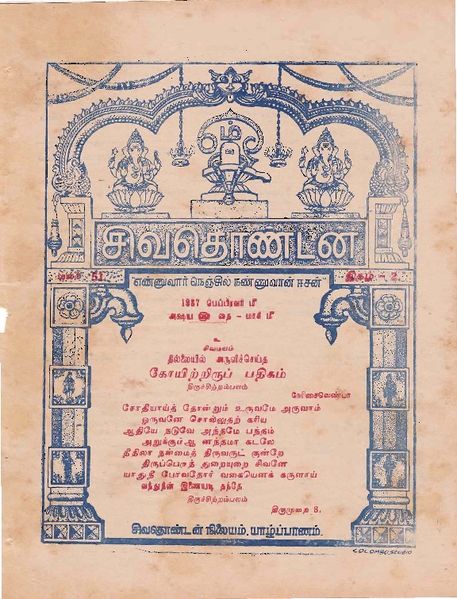 ஓம்
சிவதொண்டன்
மலர் 51 இதழ் - 2
எண்ணுவார் நெஞ்சில் நண்ணுவான் ஈசன்
1987 பெப்ரவரி மீ
அக்ஷய ௵ தை - மாசி மீ
உ
சிவமயம்
தில்லையில் அருளிச்செய்த
கோயிற்றிருப் பதிகம்
திருச்சிற்றம்பலம்
சோதியாய்த் தோன்றும் உருவமே அருவாம்
ஒருவனே சொல்லுதற் கரிய
ஆதியே நடுவே அந்தமே பந்தம்
அறுக்கும்ஆ னந்தமா கடலே
தீதிலா நன்மைத் திருவருட் குன்றே
திருப்பெருந் துறையுறை சிவனே
யாதுநீ போவதோர் வகையெனக் கருளாய்
வந்துநின் இணையடி தந்தே
திருச்சிற்றம்பலம்
திருமுறை 8.
சிவதொண்டன் நிலையம், யாழ்ப்பாணம்.
COLOMBO STUDIO